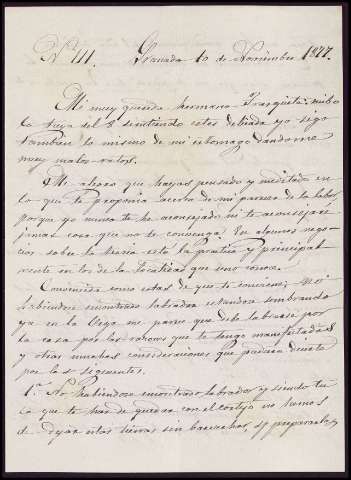 Nº 111. Granada 10 de Noviembre 1877.
Mi muy querida hermana Frasquita: recibo
la tuya del 8 sintiendo estes delicada yo sigo
tambien lo mismo de mi estomago dandome
muy malos ratos.
Me alegro que hayas pensado y meditado en
lo que te proponia acerca de mi parecer de la labor,
porque yo nunca te he aconsejado ni te aconsejaré
jamas cosa que no te convenga. En algunos nego-
cios sobre la teoria está la practica y principal
mente en los de la localidad que uno conoce.
Convencida como estas de que te conviene, y no
habiendose encontrado labrador estandose sembrando
ya en la Vega me parece que debe labrarse por
la casa por las razones que te tengo manifestadas
y otras muchas consideraciones que pudiera decirte
por lo siguiente.
1.ª No habiendose encontrado labrador, y siendo tu
la que te has de quedar con el cortijo no hemos
de dejar estas tierras sin barbechar, y prepararlas